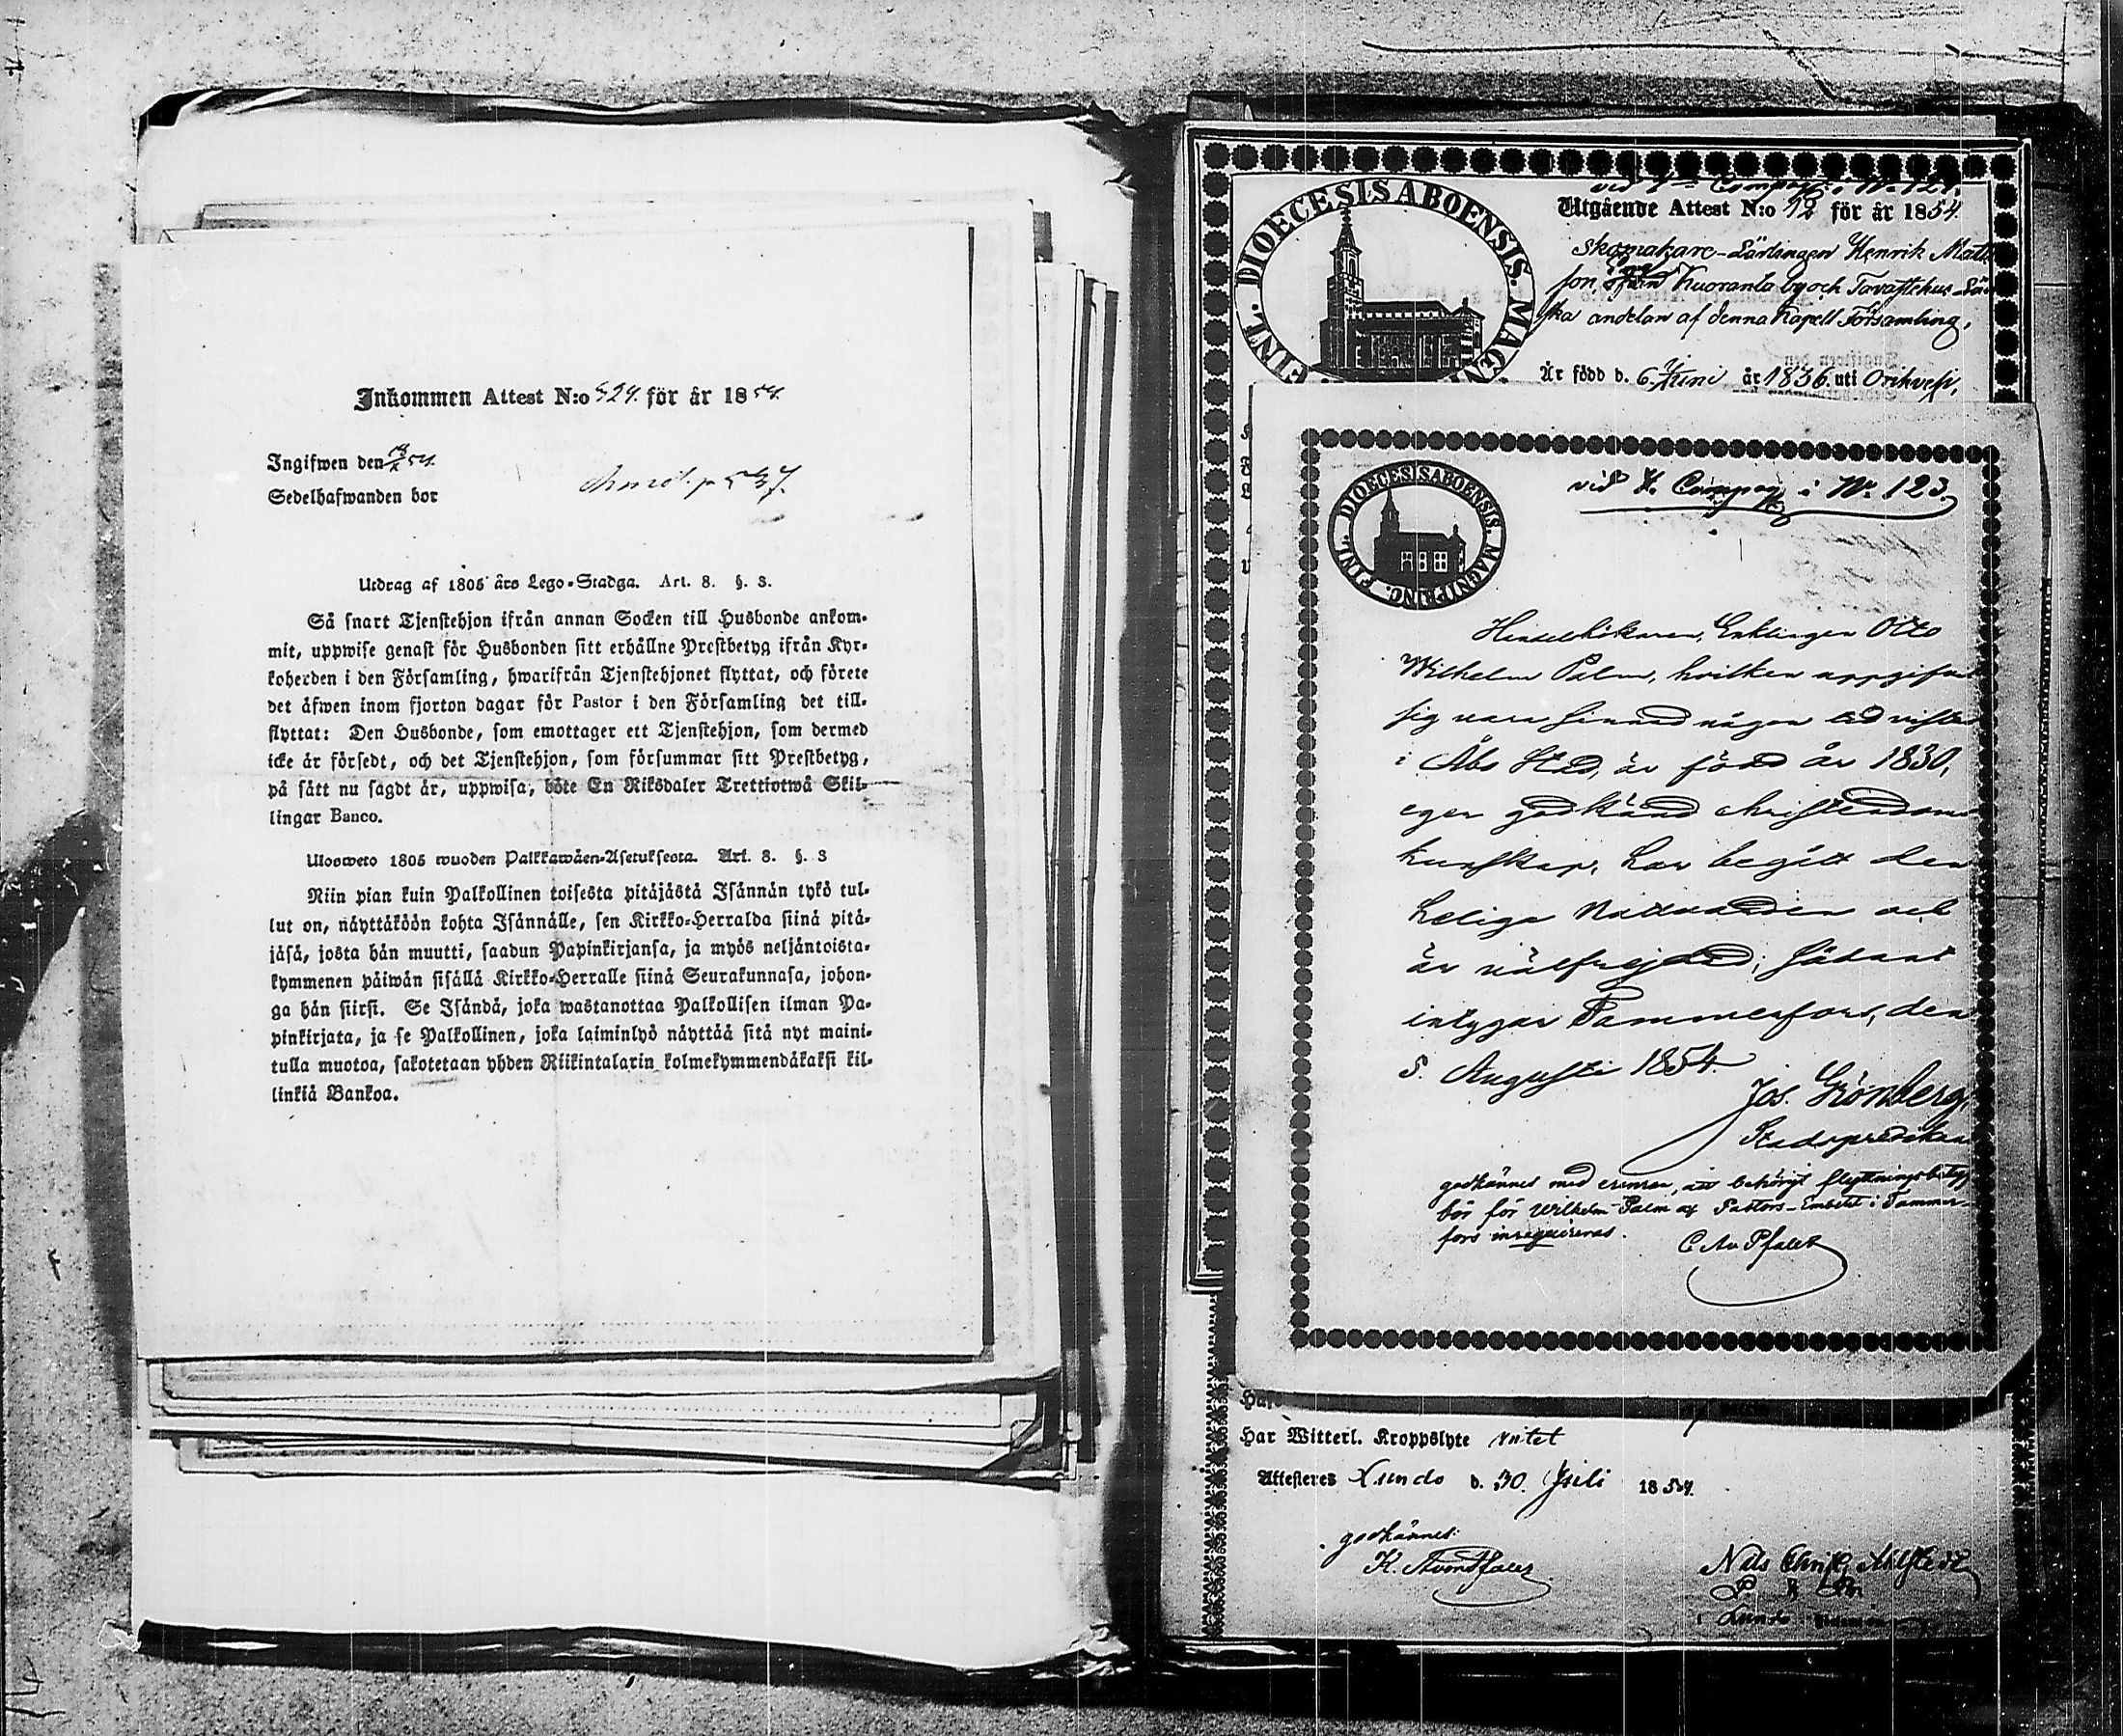 Inkommen Attest N:o 529. för år 1854.
Ingifwen den
Sedelhafwanden bor
Utdrag af 1805 års Lego-Stadga. Art. 8. §. 3.
Så snart Tjenstehjon ifrån annan Socken till Husbonde ankom-
mit, uppwise genast för Husbonden sitt erhållne Prestbetyg ifrån Kyr-
koherden i den Församling, hwarifrån Tjenstehjonet flyttat, och förete
det äfwen inom fjorton dagar för Pastor i den Församling det till-
flyttat: Den Husbonde, som emottager ett Tjenstehjon, som dermed
icke är försedt, och det Tjenstehjon, som försummar sitt Prestbetyg,
på sätt nu sagdt är, uppwisa, böte En Riksdaler Trettiotwå Skil-
lingar Banco.
Ulosweto 1805 wuoden Palkkawäen-Asetuksesta. Art. 8. §. 3
Niin pian kuin Palkollinen toisesta pitäjästä Isännän tykö tul-
lut on, näyttäköön kohta Isännälle, sen Kirkko-Herralda siinä pitä-
jäsä, josta hän muutti, saadun Papinkirjansa, ja myös neljäntoista-
kymmenen päiwän sisällä Kirkko-Herralle siinä Seurakunnasa, johon-
ga hän siirsi. Se Isändä, joka wastanottaa Palkollisen ilman Pa-
pinkirjata, ja se Palkollinen, joka laiminlyö näyttää sitä nyt maini-
tulla muotoa, sakotetaan yhden Riikintalarin kolmekymmendäkaksi kil-
linkiä Bankoa.
DIOECESIS ABOENSIS. MAGNI FINL.
Utgående Attest N:o 12 för år 1854.
Skomakare-Lärlingen Henrik Matts
son, från Kuoranta by och Tavastehus Län
ska andelan af denna Kapell Församling,
Är född d. 6. Juni år 1836. uti Orihvesi,
DIOECESIS ABOENSIS MAGNI PRINC. FINL.
vid X. Compag i No 123.
Enklingen Otto
Wilhelm Palm, hvilken uppgifvit
sig vara sinnad någon tid vistas
i Åbo Stad, är född år 1830,
eger godkänd christendoms
kunskap, har begått den
heliga Nattvarden och
är välfrejdad; sådant
intygar Tammerfors, den
5. Augusti 1854.
Jos. Grönberg,
Stadspredikant
godkännes med erinran, att behörigt flyttningsbetyg
bör för Wilhelm Palm af Pastors-Embetet i Tammer-
fors inrequireras.
Har Witterl. Kroppslyte Intet
Attesteras Lundo d. 30. Juli 1854.
godkännes:
Nils Christ. Ahlstedt
i Lundo